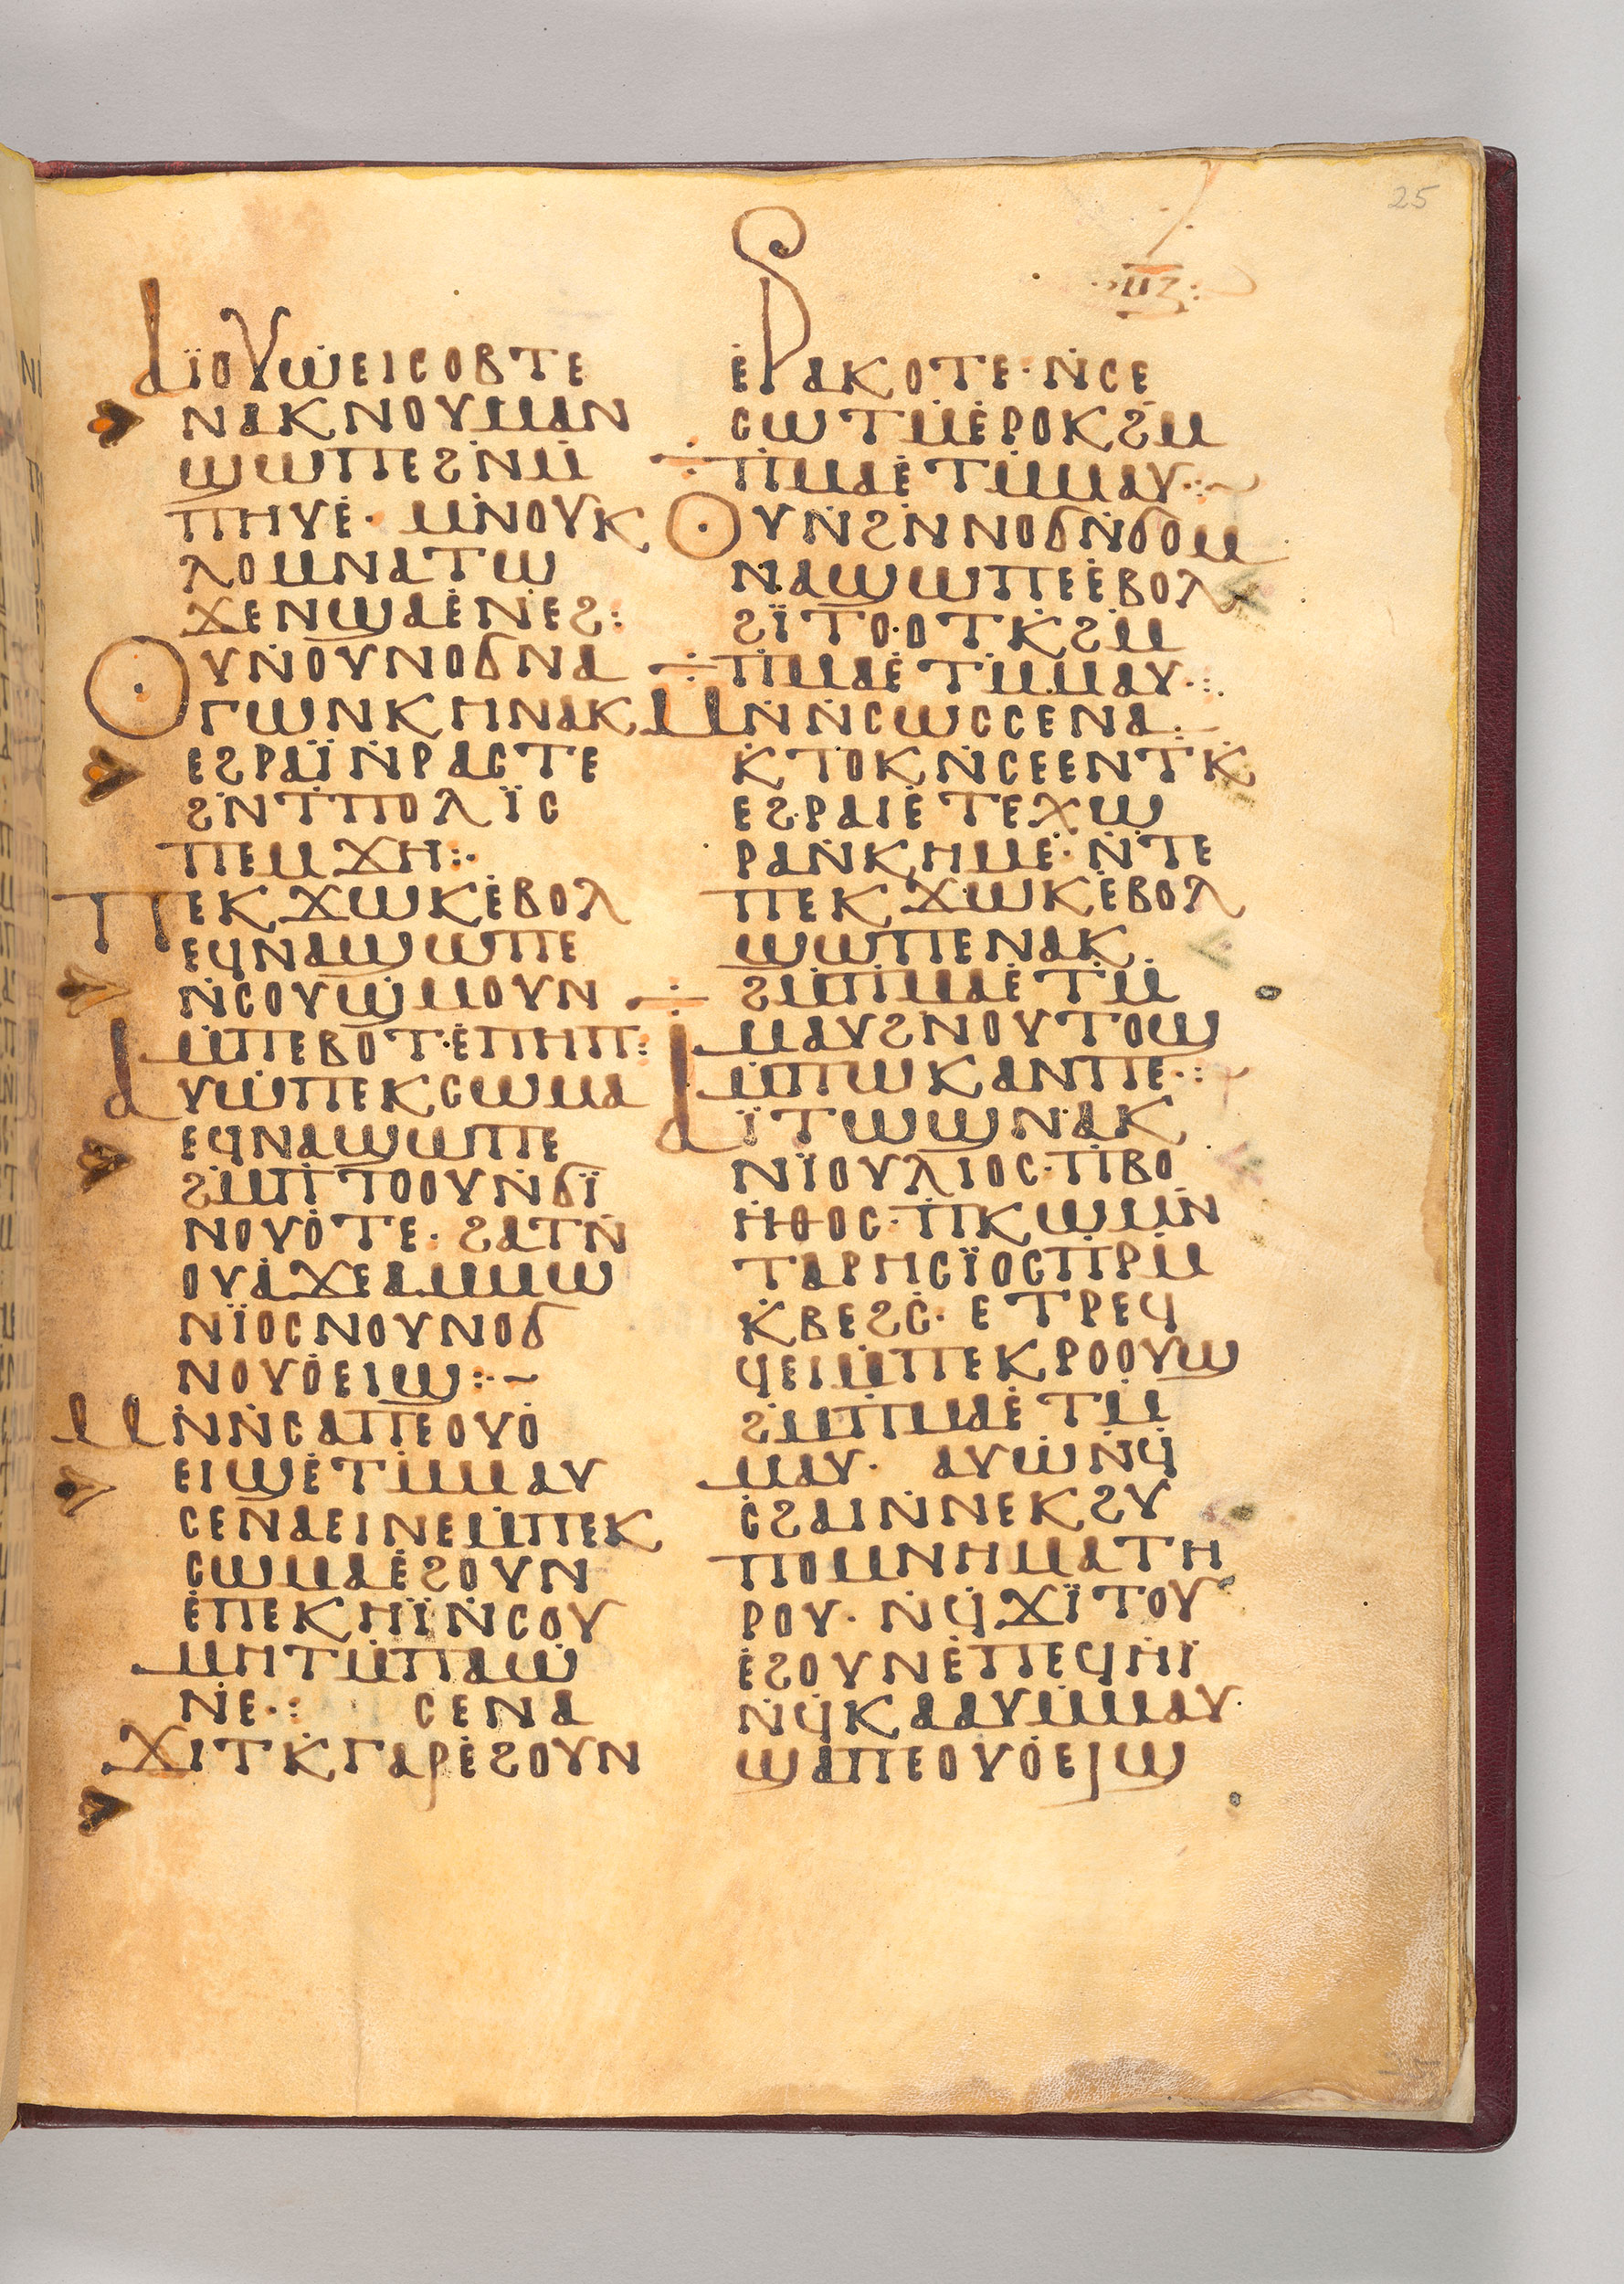 25
ⲙⲍ
ⲁⲓ̈ⲟⲩⲱ̇ⲉⲓⲥⲟⲃⲧⲉ
ⲛⲁⲕⲛⲟⲩⲙⲁⲛ
ϣⲱⲡⲉϩⲛ̇ⲙ̇
ⲡⲏⲩⲉ̇· ⲙⲛ̇ⲟⲩⲕ
ⲗⲟⲙⲛⲁⲧⲱ
ϫⲉⲛϣⲁⲉ̇ⲛⲉϩ:
ⲟⲩⲛ̇ⲟⲩⲛⲟϭⲛⲁ
ⲅⲱⲛⲕⲏⲛⲁⲕ
ⲉϩⲣⲁⲓ̈ⲛ̇ⲣⲁⲥⲧⲉ
ϩⲛ̇ⲧ̇ⲡⲟⲗⲓ̈ⲥ
ⲡⲉⲙϫⲏ:·
ⲡⲉⲕϫⲱⲕⲉ̇ⲃⲟⲗ
ⲉϥⲛⲁϣⲱⲡⲉ
ⲛ̇ⲥⲟⲩϣ̇ⲙⲟⲩⲛ
ⲙ̇ⲡⲉⲃⲟⲧ·ⲉ̇ⲡⲏⲡ:
ⲁⲩⲱ̇ⲡⲉⲕⲥⲱⲙⲁ
ⲉϥⲛⲁϣⲱⲡⲉ
ϩⲙ̇ⲡ̇ⲧⲟⲟⲩⲛ̇ϭⲓ̈
ⲛⲟⲩⲟ̇ⲧⲉ· ϩⲁⲧⲛ̇
ⲟⲩⲁ̇ϫⲉⲁⲙⲙⲱ
ⲛⲓ̈ⲟⲥⲛⲟⲩⲛⲟϭ
ⲛⲟⲩⲟ̇ⲉⲓϣ:·~
ⲙⲛ̇ⲛ̇ⲥⲁⲡⲉⲟⲩⲟ̇
ⲉⲓϣⲉ̇ⲧⲙ̇ⲙⲁⲩ
ⲥⲉⲛⲁⲉⲓⲛⲉⲙ̇ⲡⲉⲕ
ⲥⲱⲙⲁⲉ̇ϩⲟⲩⲛ
ⲉ̇ⲡⲉⲕⲏⲓ̈ⲛ̇ⲥⲟⲩ
ⲙⲏⲧⲙ̇ⲡⲁⲱ̇
ⲛⲉ·: ⲥⲉⲛⲁ
ϫⲓⲧⲕ̇ⲅⲁⲣⲉ̇ϩⲟⲩⲛ
ⲉ̇ⲣⲁⲕⲟⲧⲉ·ⲛ̇ⲥⲉ
ⲥⲱⲧⲙ̇ⲉ̇ⲣⲟⲕϩⲙ̇
ⲡ̇ⲙⲁⲉ̇ⲧⲙ̇ⲙⲁⲩ·:~
ⲟⲩⲛ̇ϩⲛ̇ⲛⲟϭⲛ̇ϭⲟⲙ
ⲛⲁϣⲱⲡⲉⲉ̇ⲃⲟⲗ
ϩⲓ̈ⲧⲟ·ⲟⲧⲕ̇ϩⲙ̇
ⲡ̇ⲙⲁⲉ̇ⲧⲙ̇ⲙⲁⲩ·:
ⲙⲛ̇ⲛ̇ⲥⲱⲥⲥⲉⲛⲁ
ⲕ̇ⲧⲟⲕⲛ̇ⲥⲉⲉⲛⲧⲕ̇
ⲉϩⲣⲁⲓⲉ̇ⲧⲉⲭⲱ
ⲣⲁⲛ̇ⲕⲏⲙⲉ̇·ⲛ̇ⲧⲉ
ⲡⲉⲕϫⲱⲕⲉ̇ⲃⲟⲗ
ϣⲱⲡⲉⲛⲁⲕ
ϩⲙ̇ⲡ̇ⲙⲁⲉ̇ⲧⲙ̇
ⲙⲁⲩϩⲛⲟⲩⲧⲟϣ
ⲙ̇ⲡⲱⲕⲁⲛⲡⲉ·:
ⲁⲓ̈ⲧⲱϣⲛⲁⲕ
ⲛⲓ̈ⲟⲩⲗⲓⲟⲥ·ⲡ̇ⲃⲟ
ⲏⲑⲟⲥ·ⲡ̇ⲕⲱⲙⲛ̇
ⲧⲁⲣⲏⲥⲓ̈ⲟⲥⲡ̇ⲣⲙ̇
ⲕ̇ⲃⲉϩⲥ̇· ⲉⲧⲣⲉϥ
ϥⲉⲓⲙ̇ⲡⲉⲕⲣⲟⲟⲩϣ
ϩⲙ̇ⲡ̇ⲙⲁⲉ̇ⲧⲙ̇
ⲙⲁⲩ· ⲁⲩⲱ̇ⲛ̇ϥ̇
ⲥ̇ϩⲁⲓⲛ̇ⲛⲉⲕϩⲩ
ⲡⲟⲙⲛⲏⲙⲁⲧⲏ
ⲣⲟⲩ· ⲛ̇ϥ̇ϫⲓ̈ⲧⲟⲩ
ⲉ̇ϩⲟⲩⲛⲉ̇ⲡⲉϥⲏⲓ̈
ⲛ̇ϥⲕⲁⲁⲩⲙ̇ⲙⲁⲩ·
ϣⲁⲡⲉⲟⲩⲟ̇ⲉⲓϣ